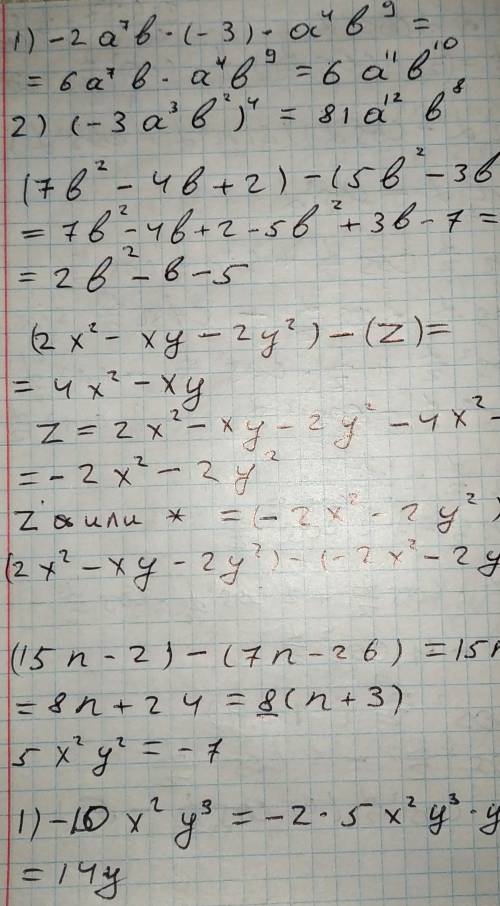 1) -2a⁷b · (-3) · a⁴b⁹ =
= 6a⁷b · a⁴b⁹ = 6a¹¹b¹⁰
2) (-3a³b²)⁴ = 81a¹²b⁸
(7b² - 4b + 2) - (5b² - 3b
= 7b² - 4b + 2 - 5b² + 3b - 7 =
= 2b² - b - 5
(2x² - xy - 2y²) - (Z) =
= 4x² - xy
Z = 2x² - xy - 2y² - 4x² -
= -2x² - 2y²
Z или * = (-2x² - 2y²)
(2x² - xy - 2y²) - (-2x² - 2y
(15n - 2) - (7n - 26) = 15n
= 8n + 24 = 8(n + 3)
5x²y² = -7
1) -10x²y³ = -2 · 5x²y³ · y
= 14y